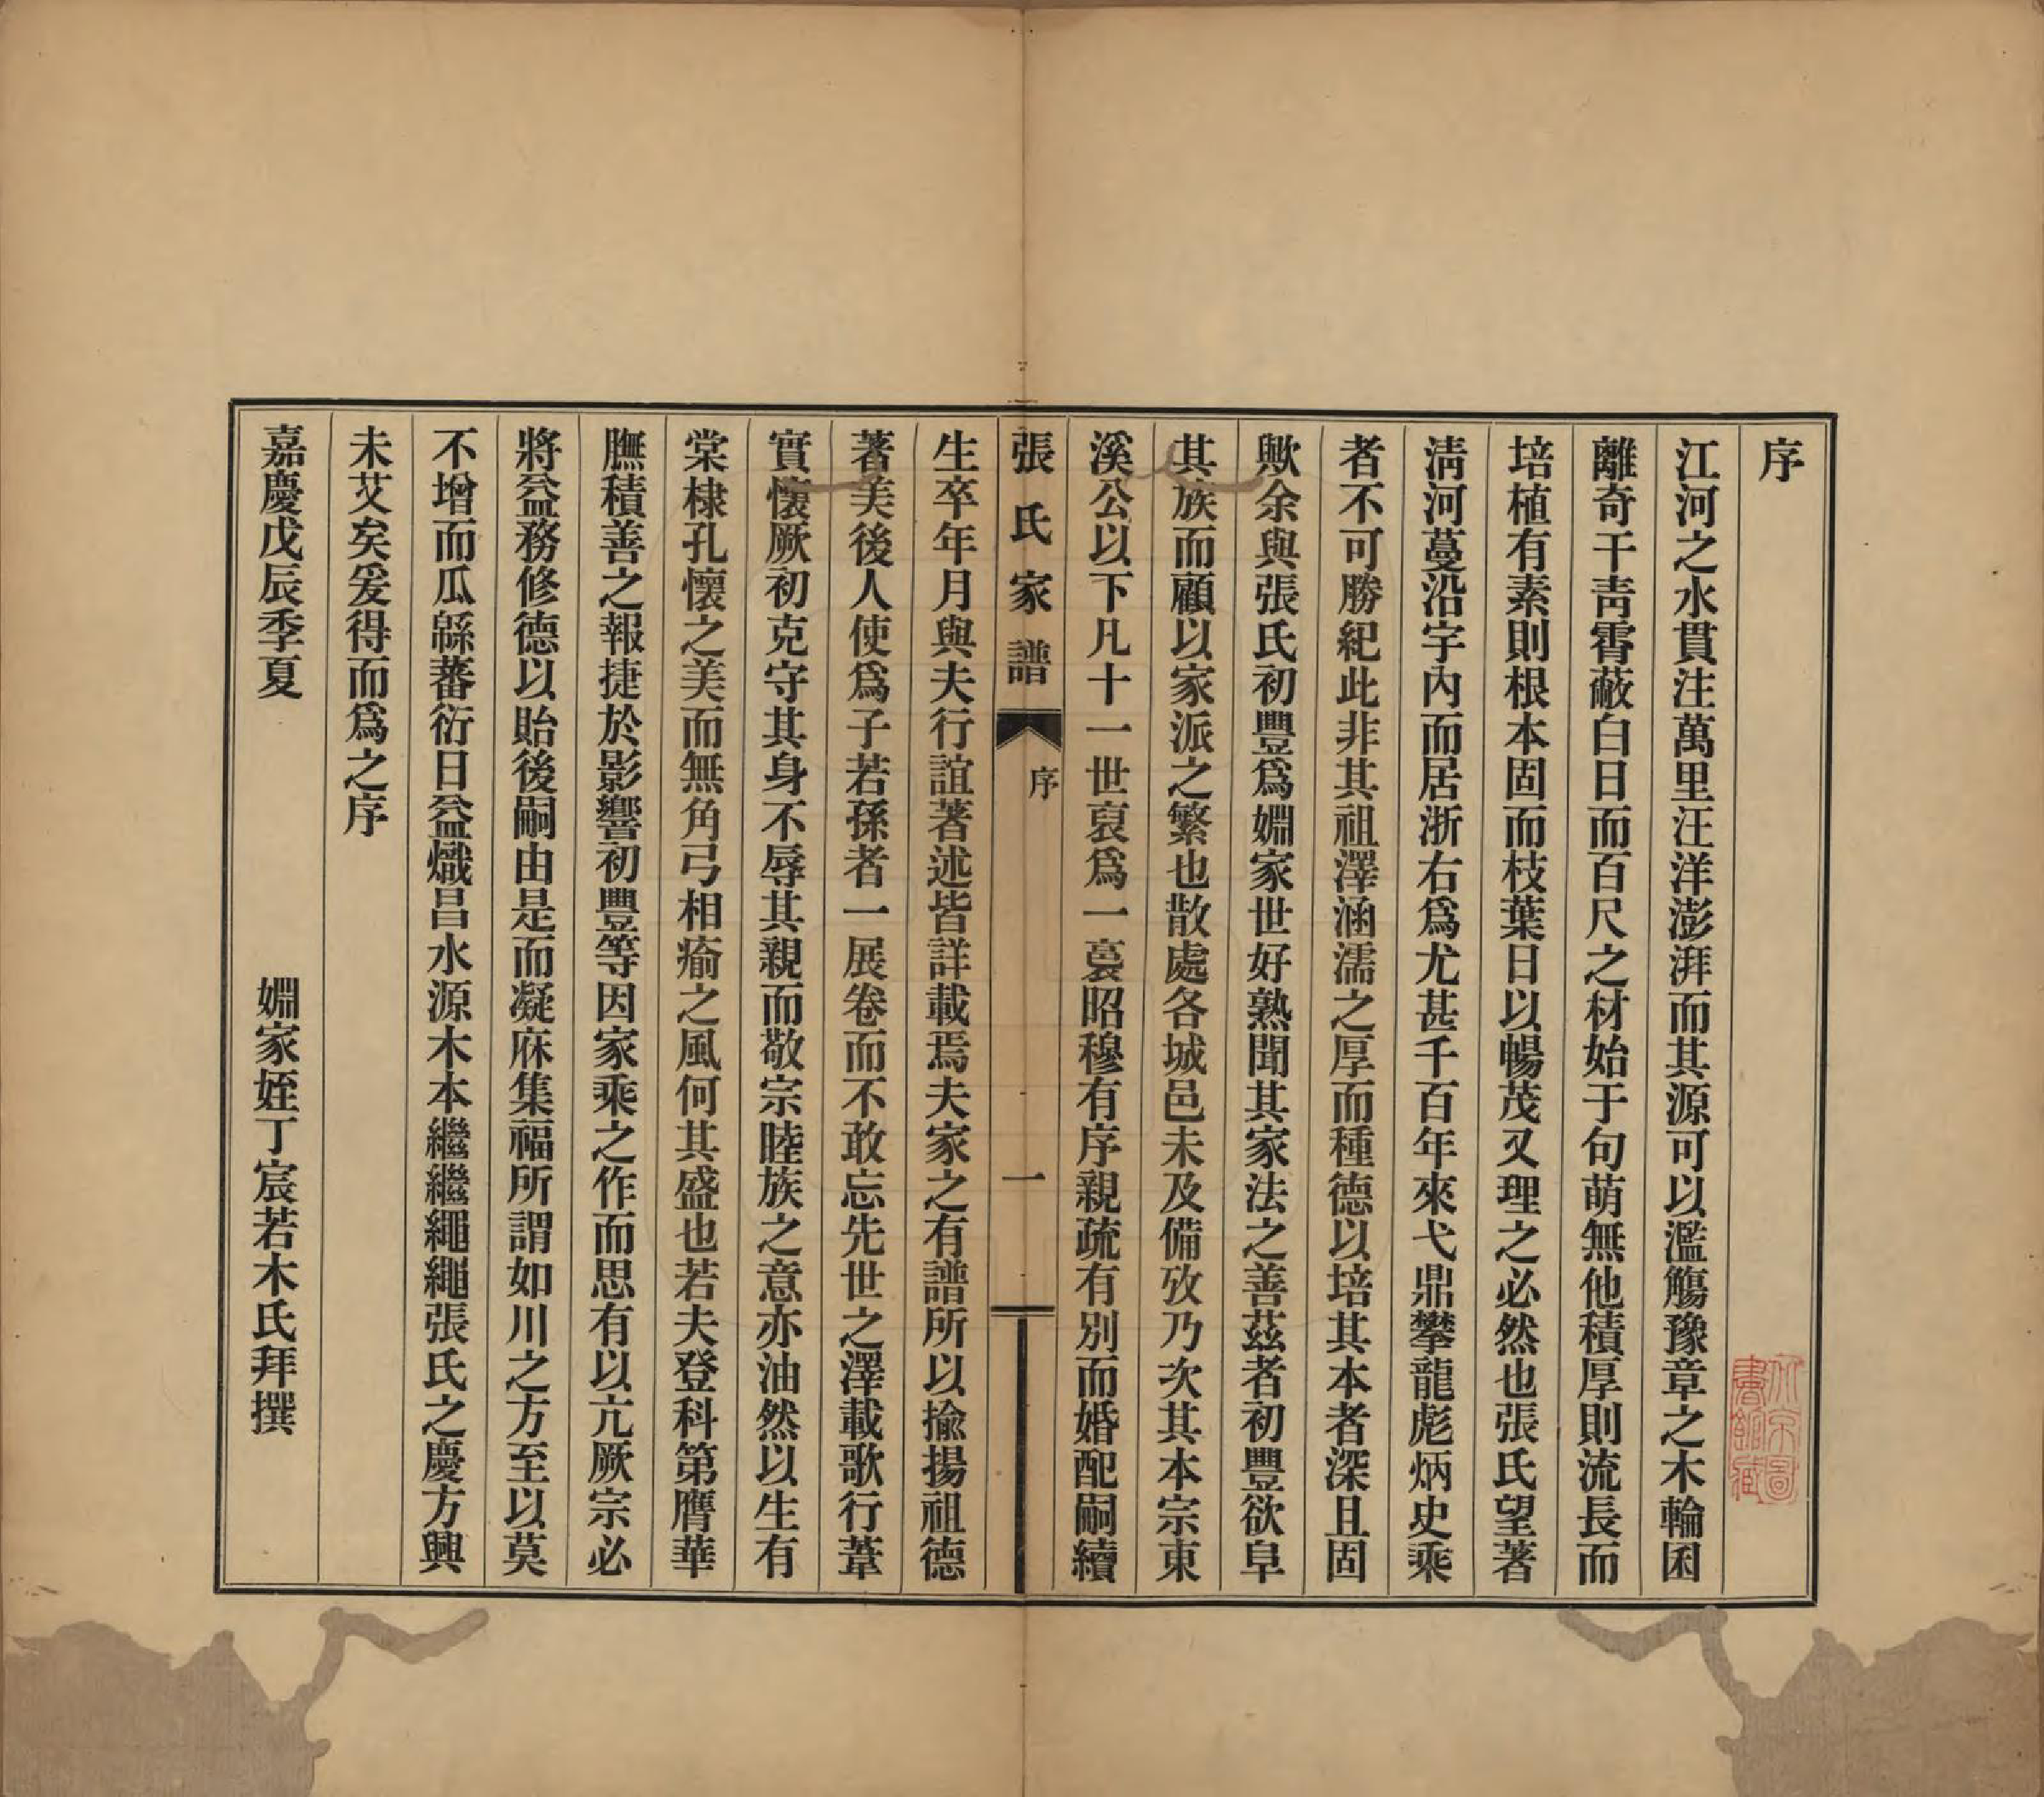 序
江河之水貫注萬里汪洋澎湃而其源可以濫觴豫章之木輪囷
離奇干靑霄蔽白日而百尺之材始于句萌無他積厚則流長而
培植有素則根本固而枝葉日以暢茂又理之必然也張氏望著
淸河蔓沿宇內而居浙右爲尤甚千百年來弋鼎攀龍彪炳史乘
者不可勝紀此非其祖澤涵濡之厚而種德以培其本者深且固
歟余與張氏初豐爲婣家世好熟聞其家法之善茲者初豐欲阜
其族而顧以家派之繁也散處各城邑未及備攷乃次其本宗東
溪公以下凡十一世裒爲一袠昭穆有序親疏有別而婚配嗣續
張氏家譜
序
一
生卒年月與夫行誼著述皆詳載焉夫家之有譜所以揄揚祖德
著美後人使爲子若孫者一展卷而不敢忘先世之澤載歌行葦
實懷厥初克守其身不辱其親而敬宗睦族之意亦油然以生有
棠棣孔懷之美而無角弓相瘉之風何其盛也若夫登科第膺華
膴積善之報捷於影響初豐等因家乘之作而思有以亢厥宗必
將益務修德以貽後嗣由是而凝庥集福所謂如川之方至以莫
不增而瓜緜蕃衍日益熾昌水源木本繼繼繩繩張氏之慶方興
未艾矣爰得而爲之序
嘉慶戊辰季夏
婣家姪丁宸若木氏拜撰
北京圖書館藏